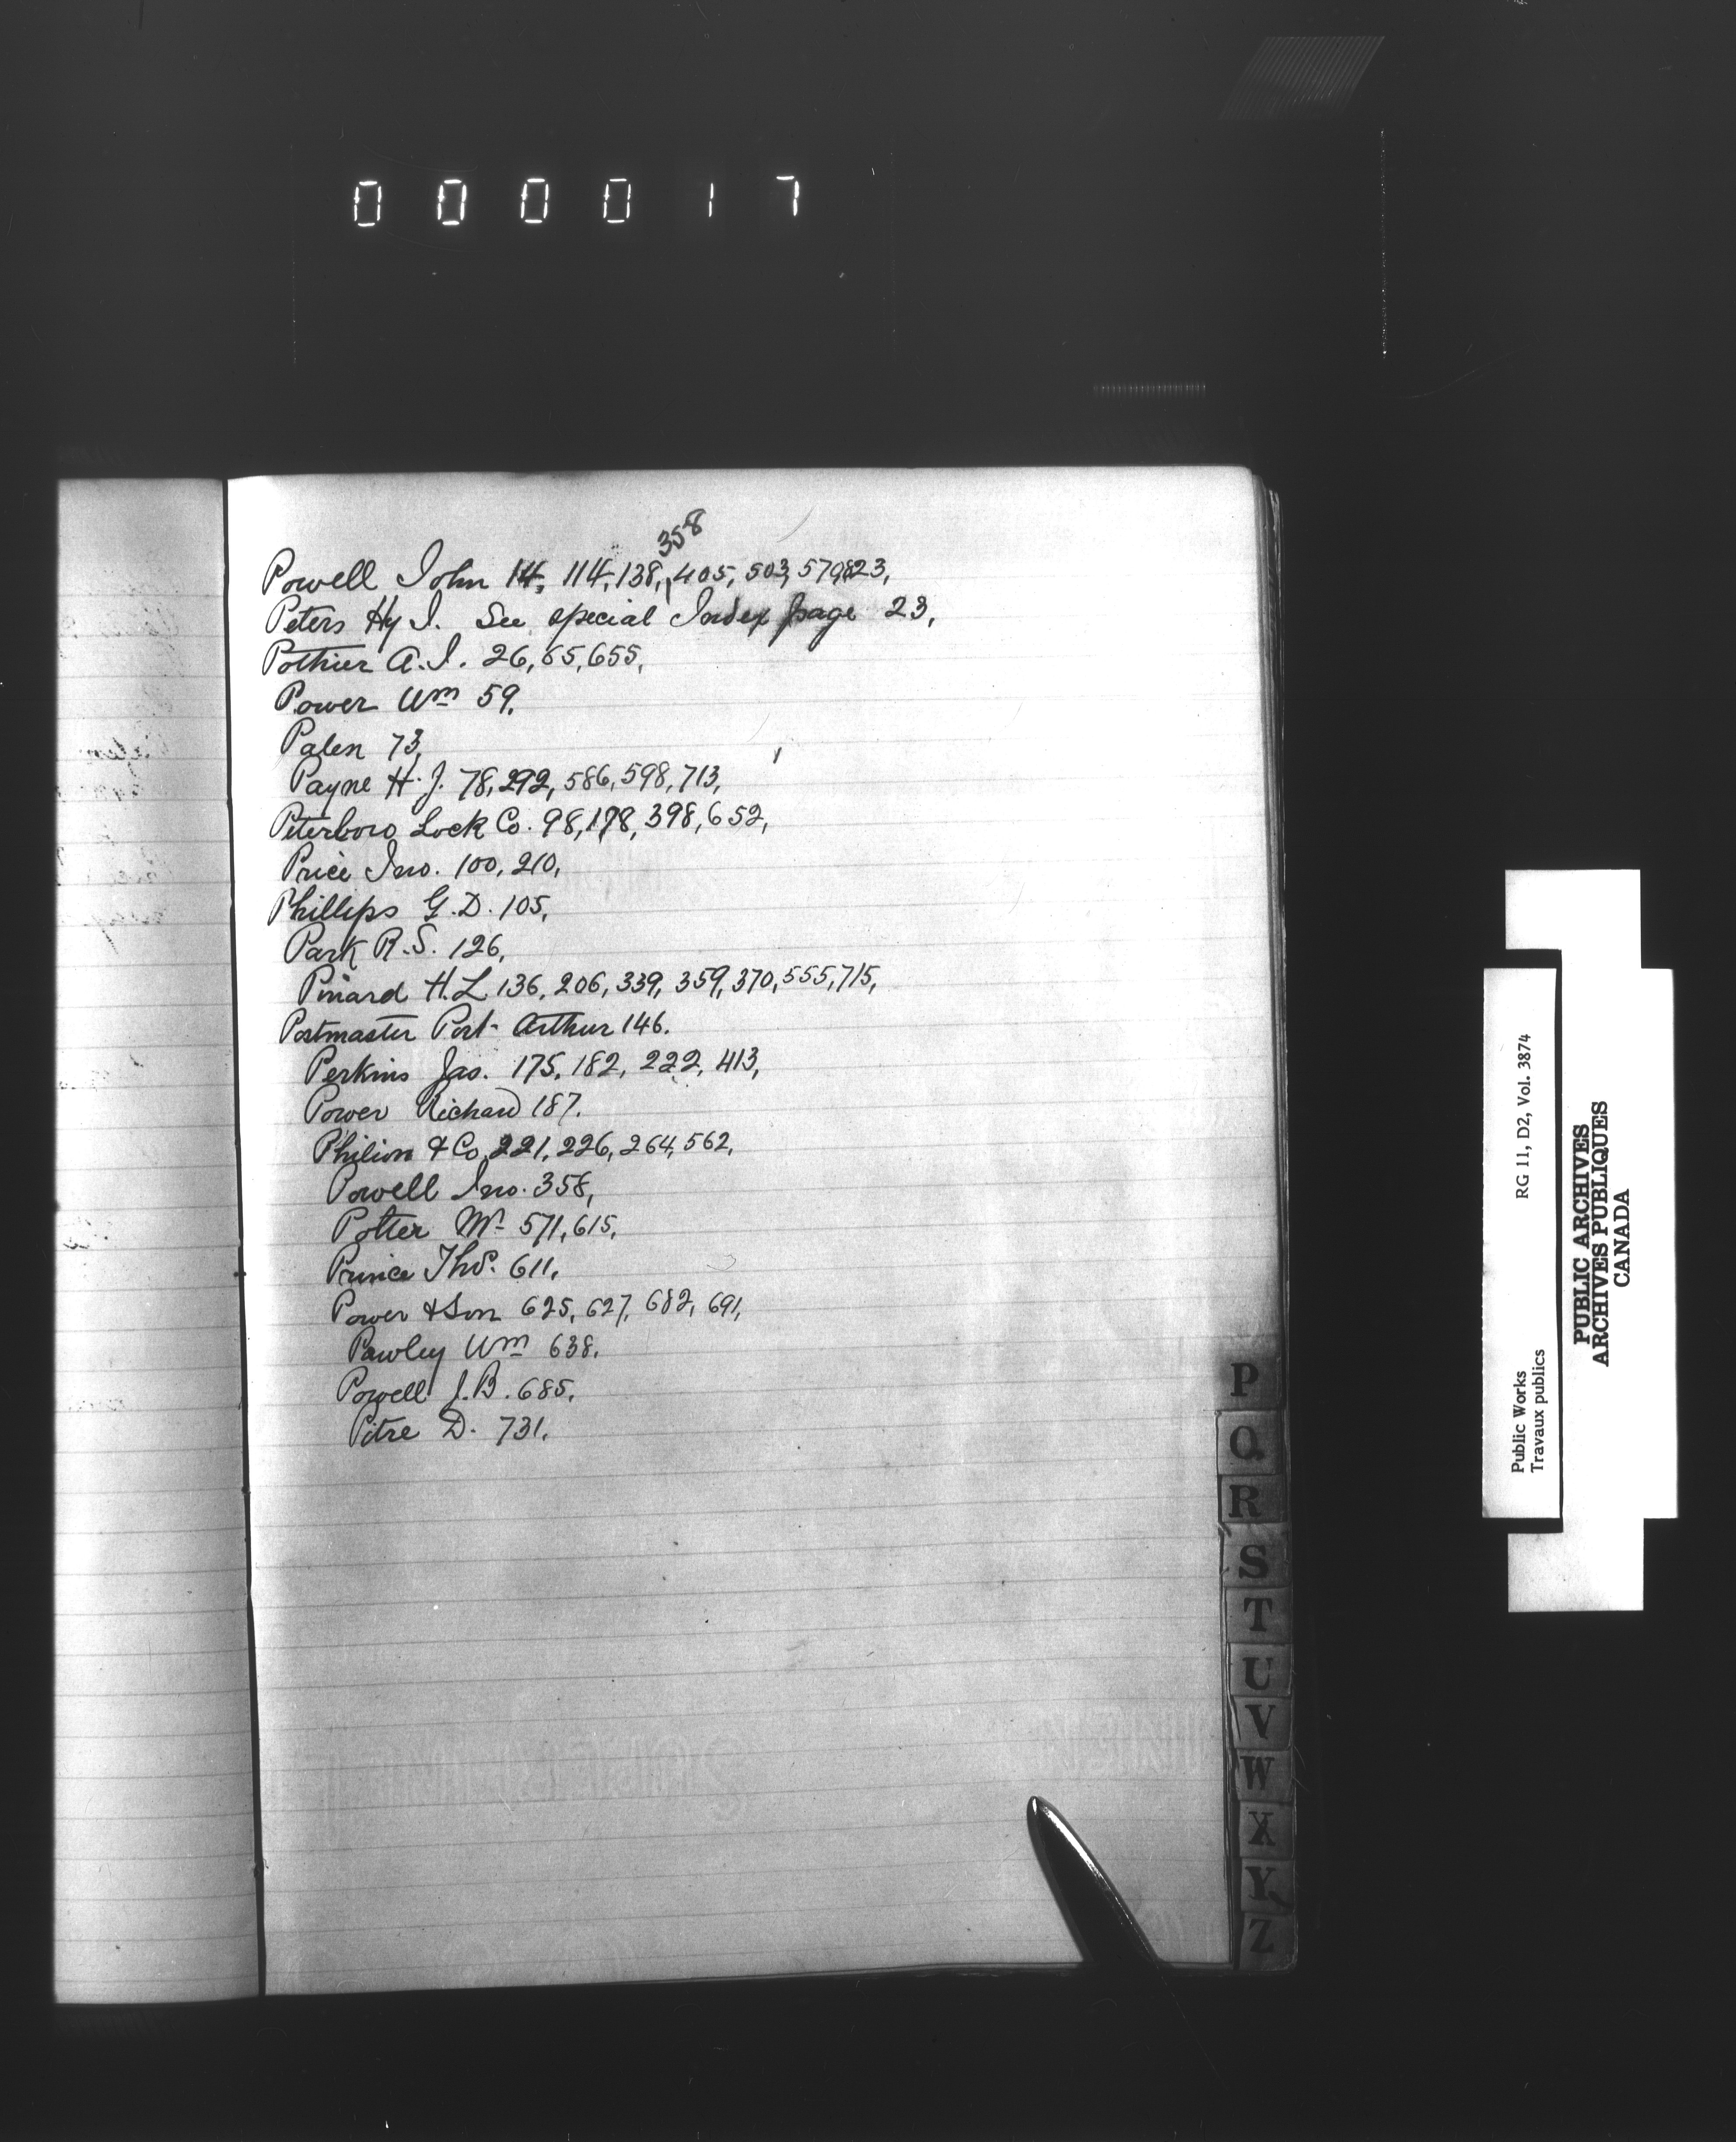 000017
358
Powell John 14, 114, 138, 405, 503, 579, 823,
Peters Hy J. See special Index page 23,
Pothier A.J. 26, 65, 655,
Power Wm 59.
Palen 73,
Payne H.J. 78, 292, 586, 598, 713,
Peterboro Lock Co. 98, 178, 398, 652,
Price Jno. 100, 210,
Phillips G.D. 105,
Park R.S. 126,
Pinard H.L 136, 206, 339, 359, 370, 555, 715,
Postmaster Port Arthur 146.
Perkins Jas. 175, 182, 222, 413,
Power Richard 187.
Philion & Co 221, 226, 264, 562,
Powell Jno. 358,
Potter Mr 571, 615,
Prince Thos. 611,
Power & Son 625, 627, 682, 691,
Pawley Wm 638.
Powell J.B. 685,
Pitre D. 731.
P
Q
R
S
T
U
V
W
X
Y
Z
Public Works
Travaux publics
RG 11, D2, Vol. 3874
PUBLIC ARCHIVES
ARCHIVES PUBLIQUES
CANADA